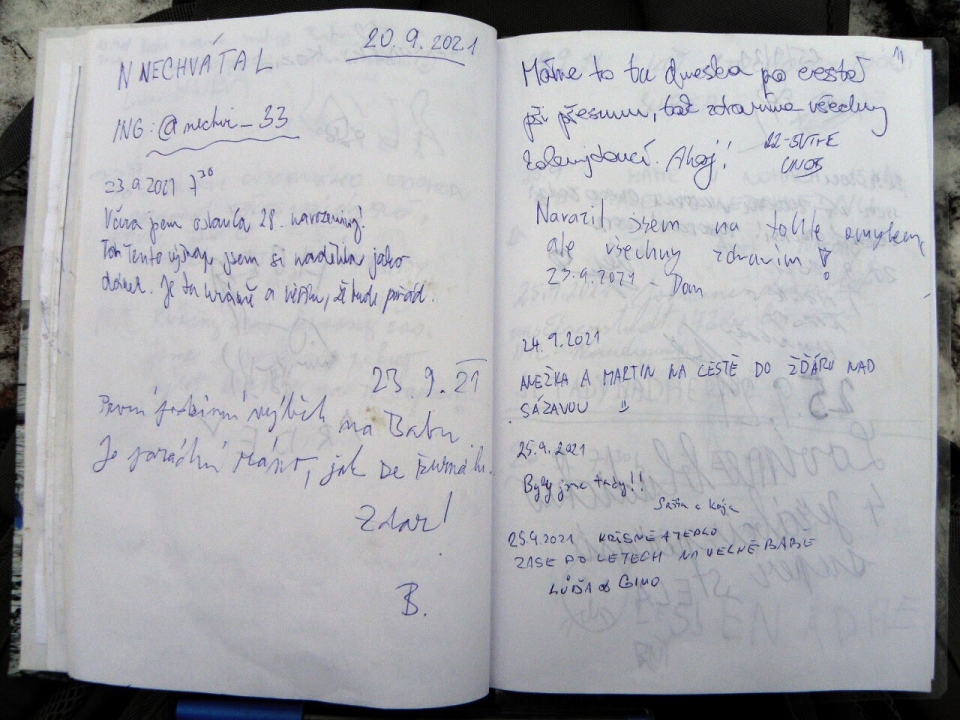 20.9.2021
N NECHVÁTAL
ING: @nechvi_33
23.9.2021 7³⁰
Včera jsem oslavila 28. narozeniny!
Tak tento výšlap jsem si nadělila jako
dárek. Je tu krásně a věřím, že bude pořád.
23.9.21
První podzimní výšlap na Babu.
Je parádní ráno, jak
Zdar!
B.
11
Máme to tu dneska po cestě
při přesunu, tak zdravíme všechny
kolemjdoucí. Ahoj!
Narazil jsem na tohle omylem,
ale všechny zdravím!
23.9.2021 - Dan
24.9.2021
ANEŽKA A MARTIN NA CESTĚ DO ŽĎÁRU NAD
SÁZAVOU
25.9.2021
Byly jsme tady!!
Saša a Kája
25.9.2021 KRÁSNĚ A TEPLO
ZASE PO LETECH NA VELKÉ BABĚ